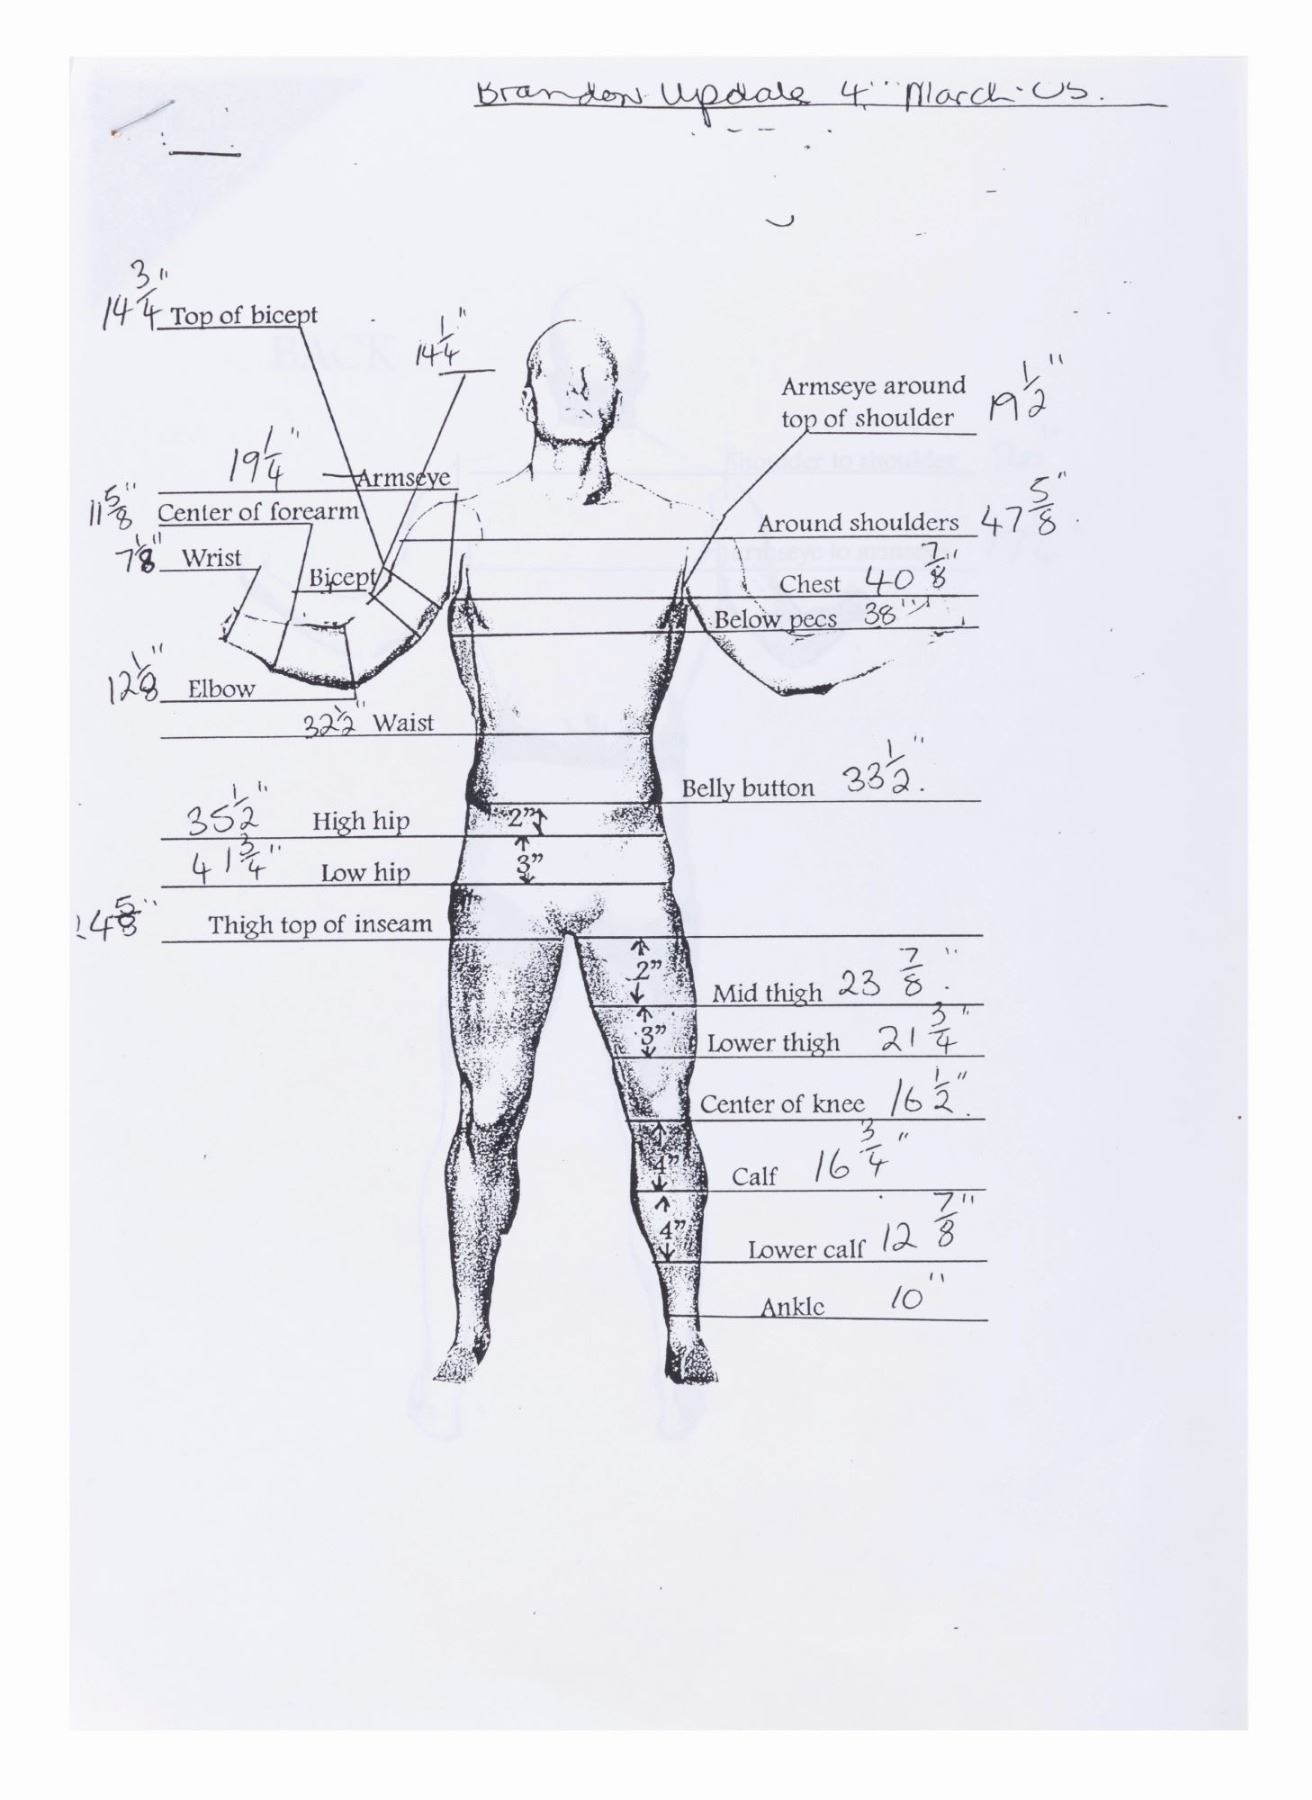 Brandon Update 4th March 05.
14 3/4" Top of bicept
14 1/4"
Armseye around
top of shoulder 19 1/2"
19 1/4" Armseye
11 5/8" Center of forearm
Around shoulders 47 5/8"
7 1/8" Wrist
Bicept
Chest 40 7/8"
Below pecs 38"
12 1/8" Elbow
32 1/2" Waist
Belly button 33 1/2".
35 1/2" High hip
2"
41 3/4" Low hip
3"
24 5/8" Thigh top of inseam
2"
Mid thigh 23 7/8".
3"
Lower thigh 21 3/4"
Center of knee 16 1/2".
4"
Calf 16 3/4"
4"
Lower calf 12 7/8"
Ankle 10"
BACK
Shoulder to shoulder
armseye to armseye